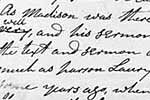 As Madison was there
well
very, and his sermon
the text and sermon a
much as parson Laury
years ago, when